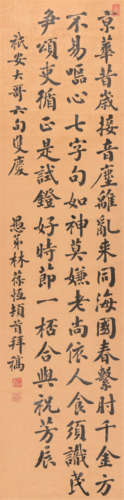 京華昔歲接音塵離亂來同海國春繫肘千金方
不易嘔心七字句如神莫嫌老尚依人食須識民
爭頌吏循正是試鐙好時節一桮合與祝芳辰
祇安大哥六旬雙慶
愚弟林葆恆頓首拜稿